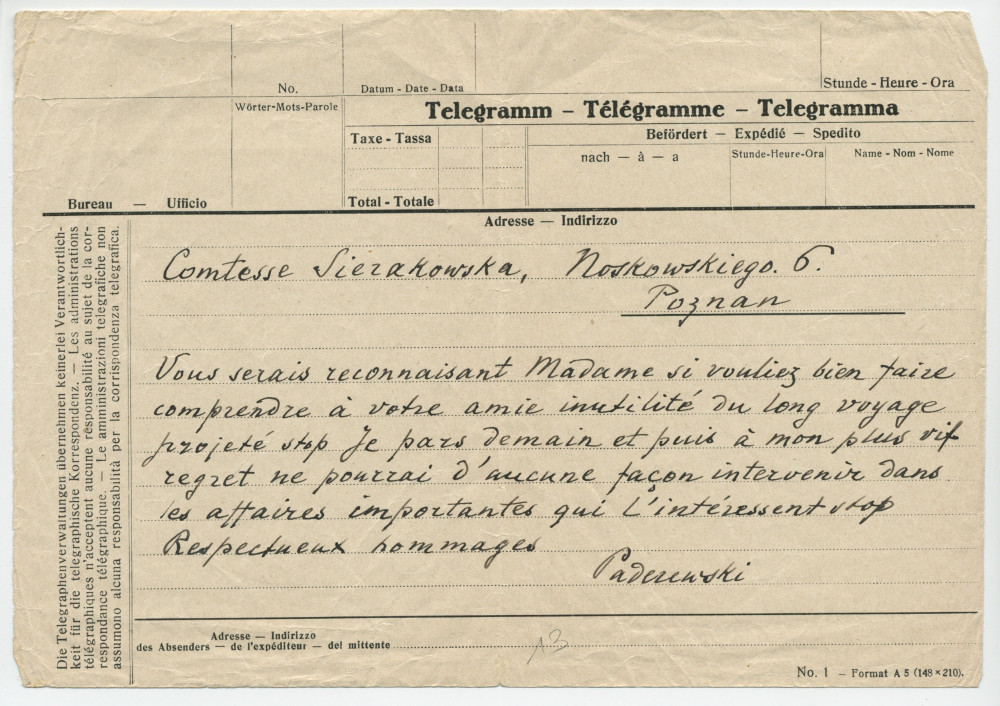 No.
Datum - Date - Data
Stunde - Heure - Ora
Wörter-Mots-Parole
Telegramm – Télégramme – Telegramma
Taxe - Tassa
Befördert – Expédié – Spedito
nach – à – a
Stunde-Heure-Ora
Name - Nom - Nome
Bureau – Ufficio
Total - Totale
Adresse – Indirizzo
Comtesse Sierakowska, Noskowskiego. 6.
Poznan
Vous serais reconnaisant Madame si vouliez bien faire
comprendre à votre amie inutilité du long voyage
projeté stop Je pars demain et puis à mon plus vif
regret ne pourrai d'aucune façon intervenir dans
les affaires importantes qui l'intéressent stop
Respectueux hommages
Paderewski
Die Telegraphenverwaltungen übernehmen keinerlei Verantwortlich-
keit für die telegraphische Korrespondenz. – Les administrations
télégraphiques n'acceptent aucune résponsabilité au sujet de la cor-
respondance télégraphique. – Le amministrazioni telegrafiche non
assumono alcuna responsabilità per la corrispondenza telegrafica.
Adresse – Indirizzo
des Absenders – de l'expéditeur – del mittente
13
No. 1 – Format A 5 (148×210).